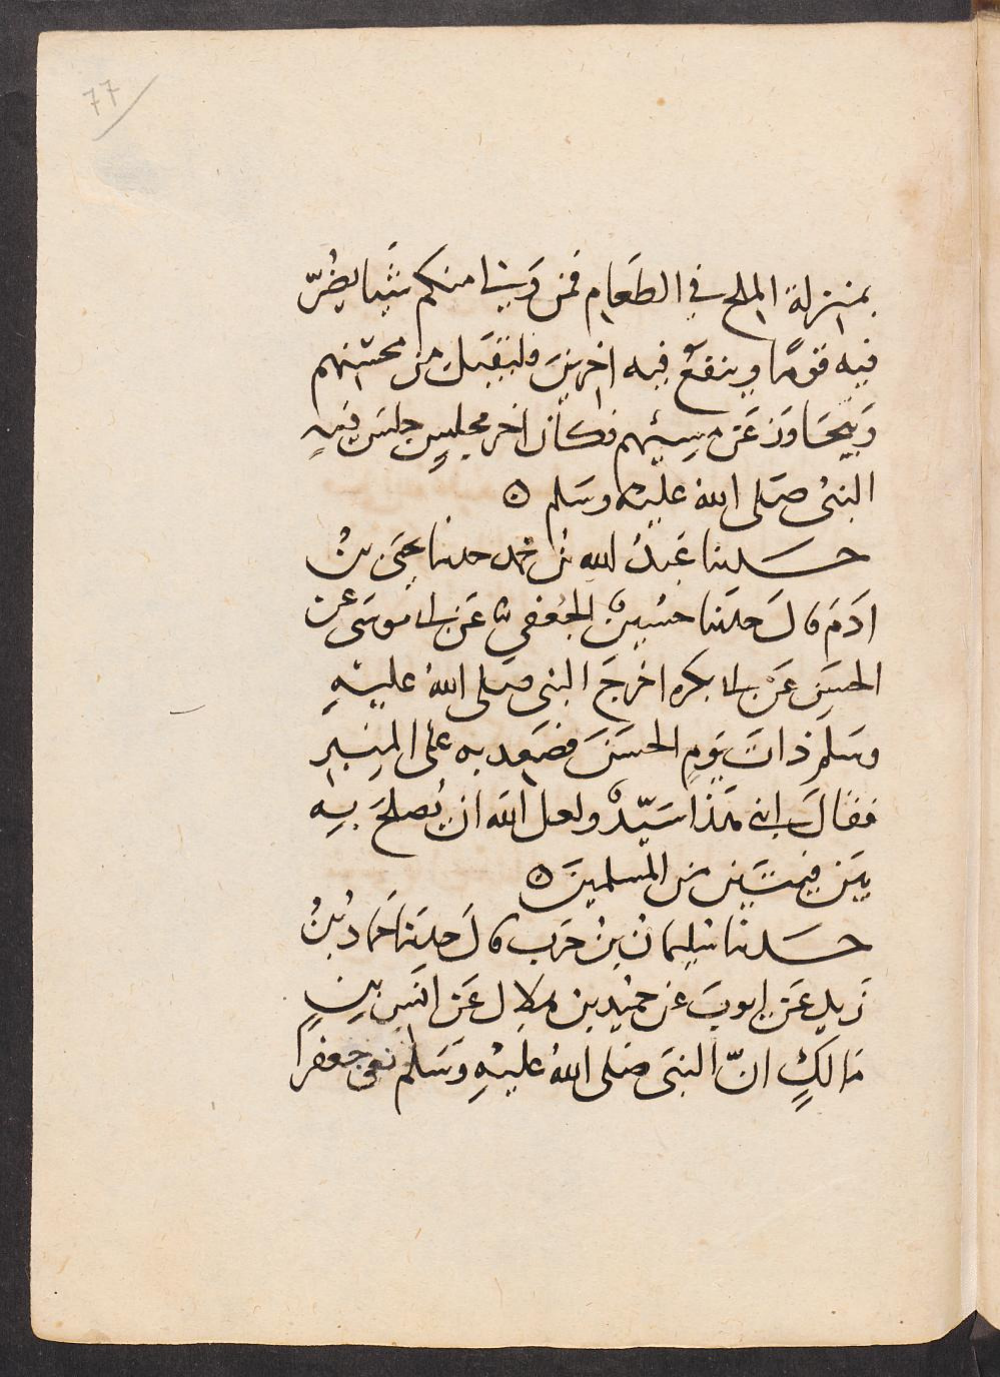 77
بمنزلة الملح في الطعام فمن ولي منكم شيا يضر
فيه قوما وينفع فيه اخرين فليقبل من محسنهم
ويتجاوز عن مسيئهم فكان اخر مجلس جلس فيه
النبي صلى الله عليه وسلم ه
حدثنا عبد الله بن محمد حدثنا يحيى بن
ادم قال حدثنا حسين الجعفي عن ابي موسى عن
الحسن عن ابي بكره اخرج النبي صلى الله عليه
وسلم ذات يوم الحسن فصعد به على المنبر
فقال ابني هذا سيد ولعل الله ان يصلح به
بين فيتين من المسلمين ه
حدثنا سليمان بن حرب قال حدثنا حماد بن
زيد عن ايوب عن حميد بن هلال عن انس بن
مالك ان النبي صلى الله عليه وسلم نعى جعفرا